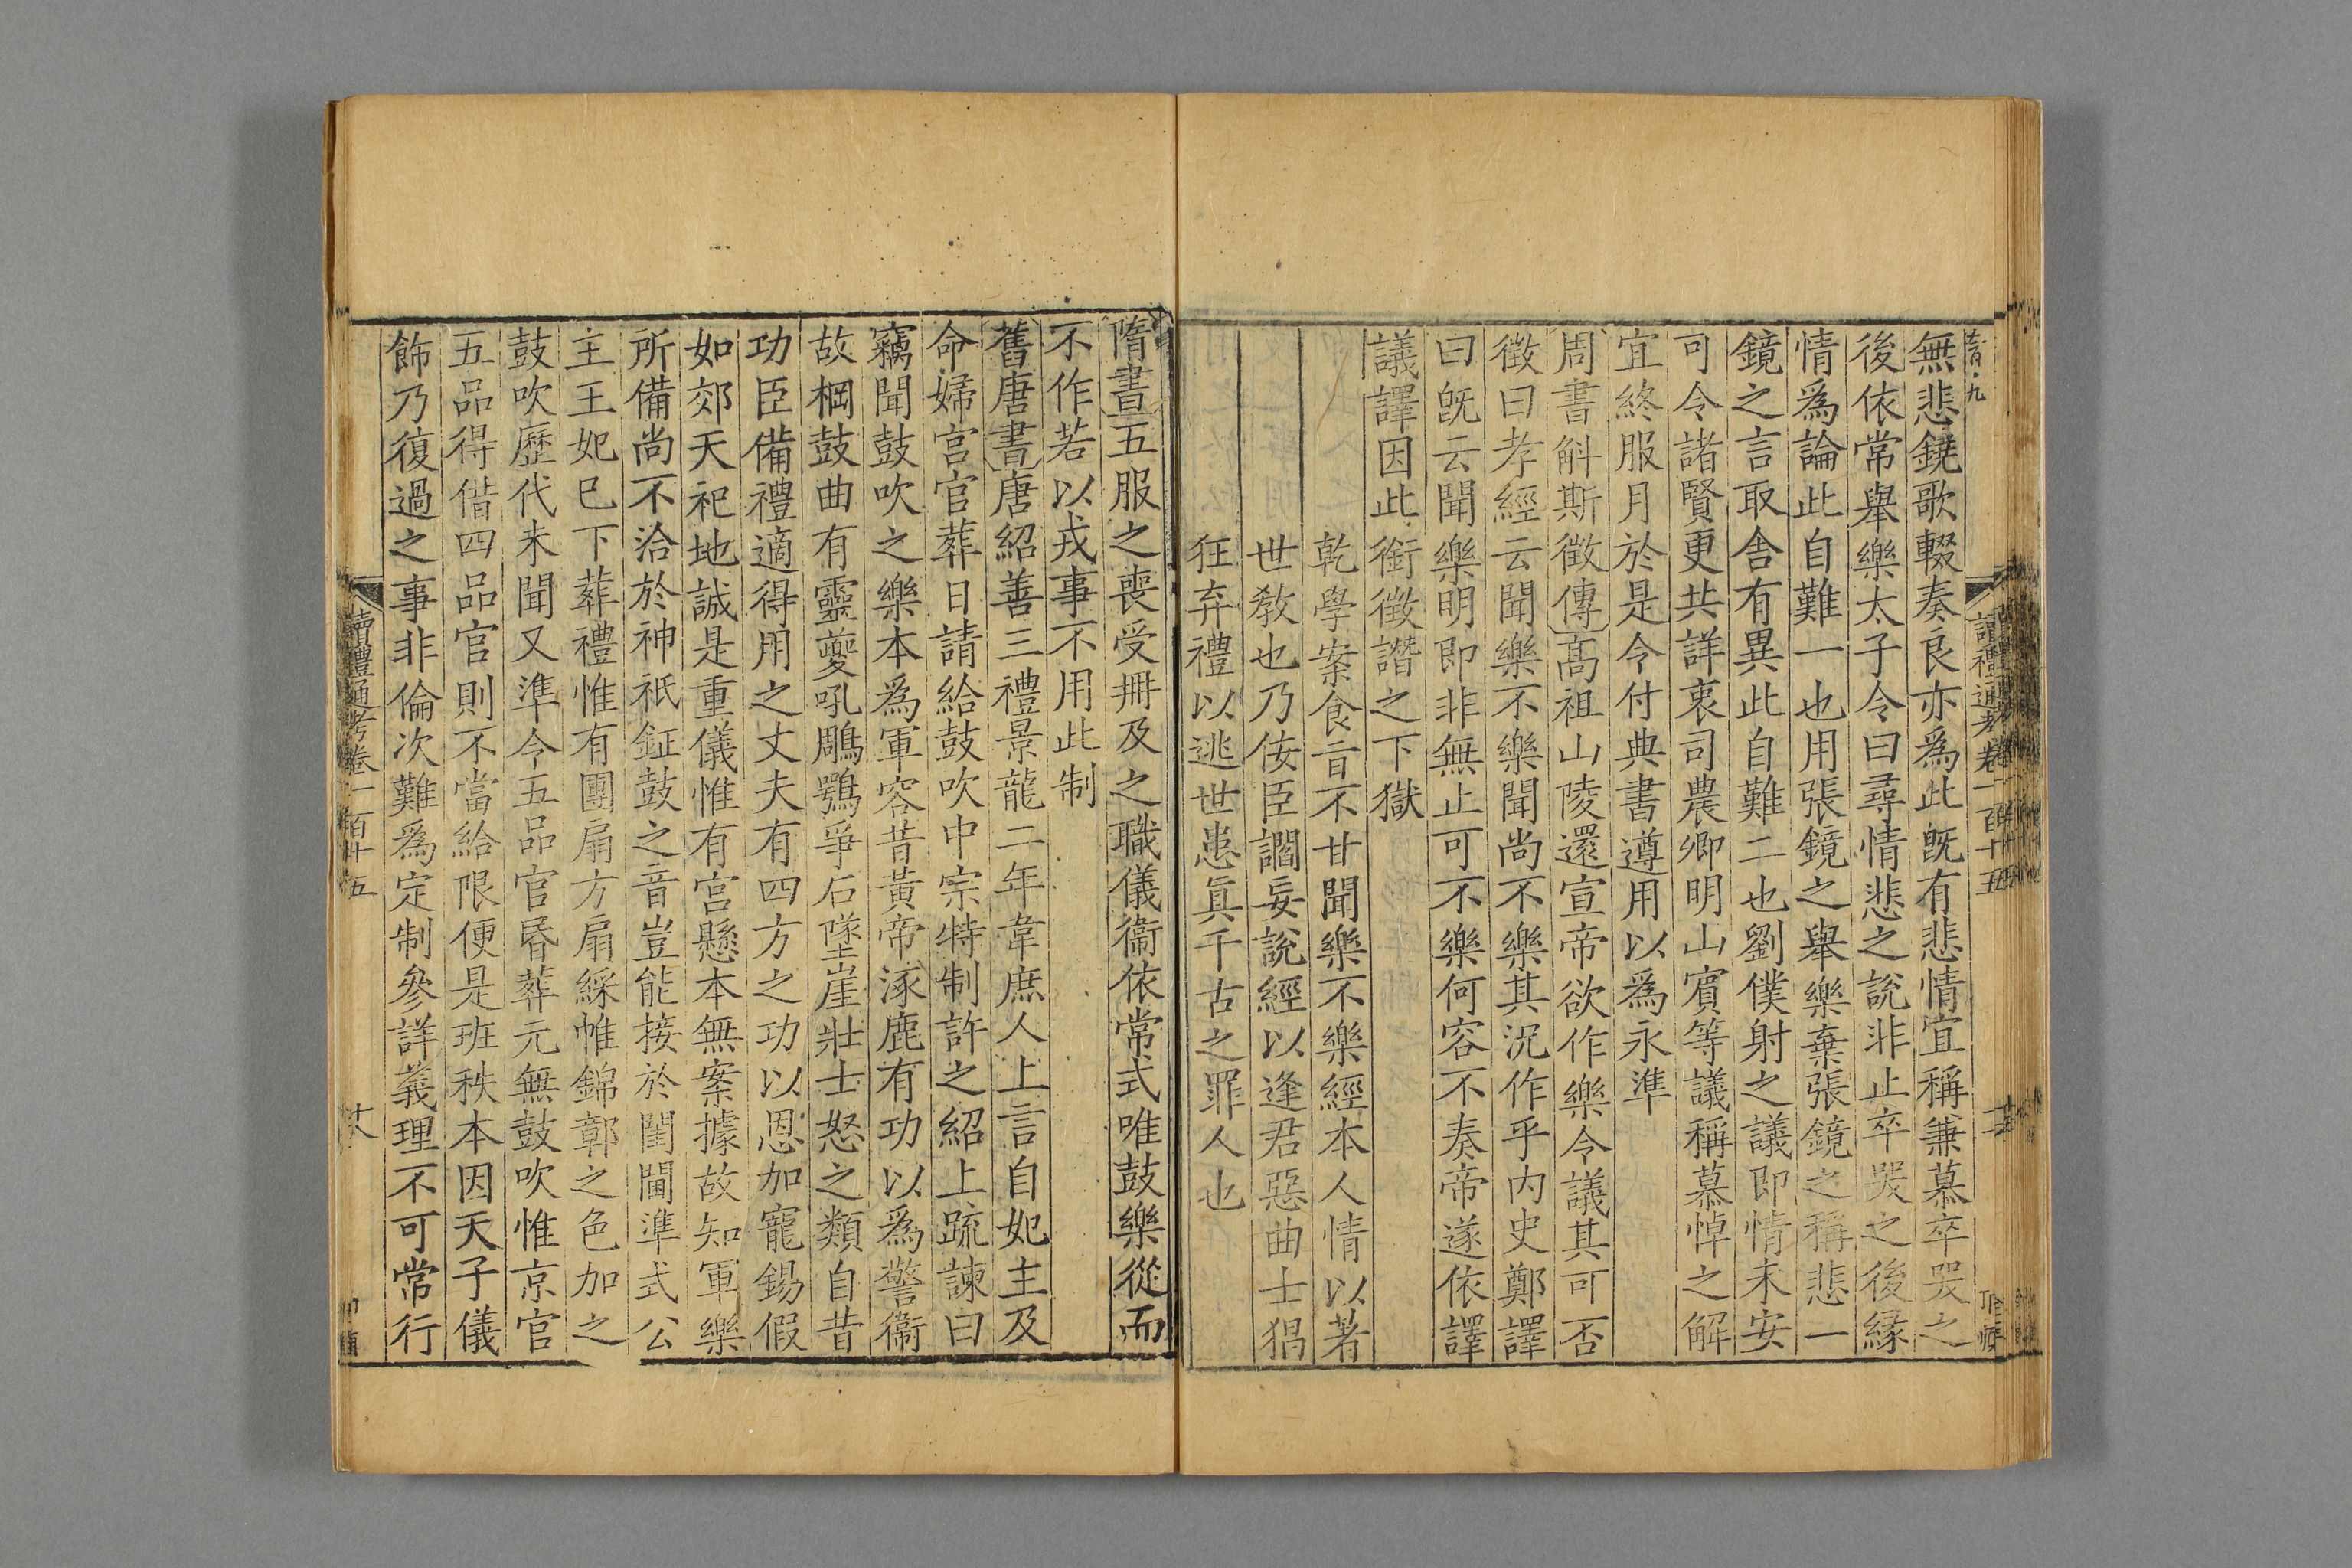 無悲鐃歌輟奏良亦為此旣有悲情宜稱兼慕卒哭之
後依常舉樂太子令曰尋情悲之說非止卒哭之後緣
情爲論此自難一也用張鏡之舉樂棄張鏡之稱悲一
鏡之言取舍有異此自難二也劉僕射之議即情未安
可令諸賢更共詳衷司農卿明山賓等議稱慕悼之解
宜終服月於是令付典書遵用以爲永準
周書斛斯徵傳高祖山陵還宣帝欲作樂令議其可否
徵曰孝經云聞樂不樂聞尚不樂其況作乎內史鄭譯
曰旣云聞樂明即非無止可不樂何容不奏帝遂依譯
議譯因此銜徵譖之下獄
乾學案食旨不甘聞樂不樂經本人情以著
世敎也乃佞臣譾妄說經以逢君惡曲士猖
狂弃禮以逃世患眞千古之罪人也
隋書五服之喪受冊及之職儀衞依常式唯鼓樂從而
不作若以戎事不用此制
舊唐書唐紹善三禮景龍二年韋庶人上言自妃主及
命婦宮官葬日請給鼓吹中宗特制許之紹上疏諫曰
竊聞鼓吹之樂本爲軍容昔黃帝涿鹿有功以爲警衞
故棡鼓曲有靈夔吼鵰鶚爭石墜崖壯士怒之類自昔
功臣備禮適得用之丈夫有四方之功以恩加寵錫假
如郊天祀地誠是重儀惟有宮懸本無案據故知軍樂
所備尚不洽於神祇鉦鼓之音豈能接於閨閫準式公
主王妃巳下葬禮惟有團扇方扇綵帷錦鄣之色加之
鼓吹歷代未聞又準令五品官昏葬元無鼓吹惟京官
五品得借四品官則不當給限便是班秩本因天子儀
飾乃復過之事非倫次難爲定制參詳義理不可常行
讀禮通考卷一百十五